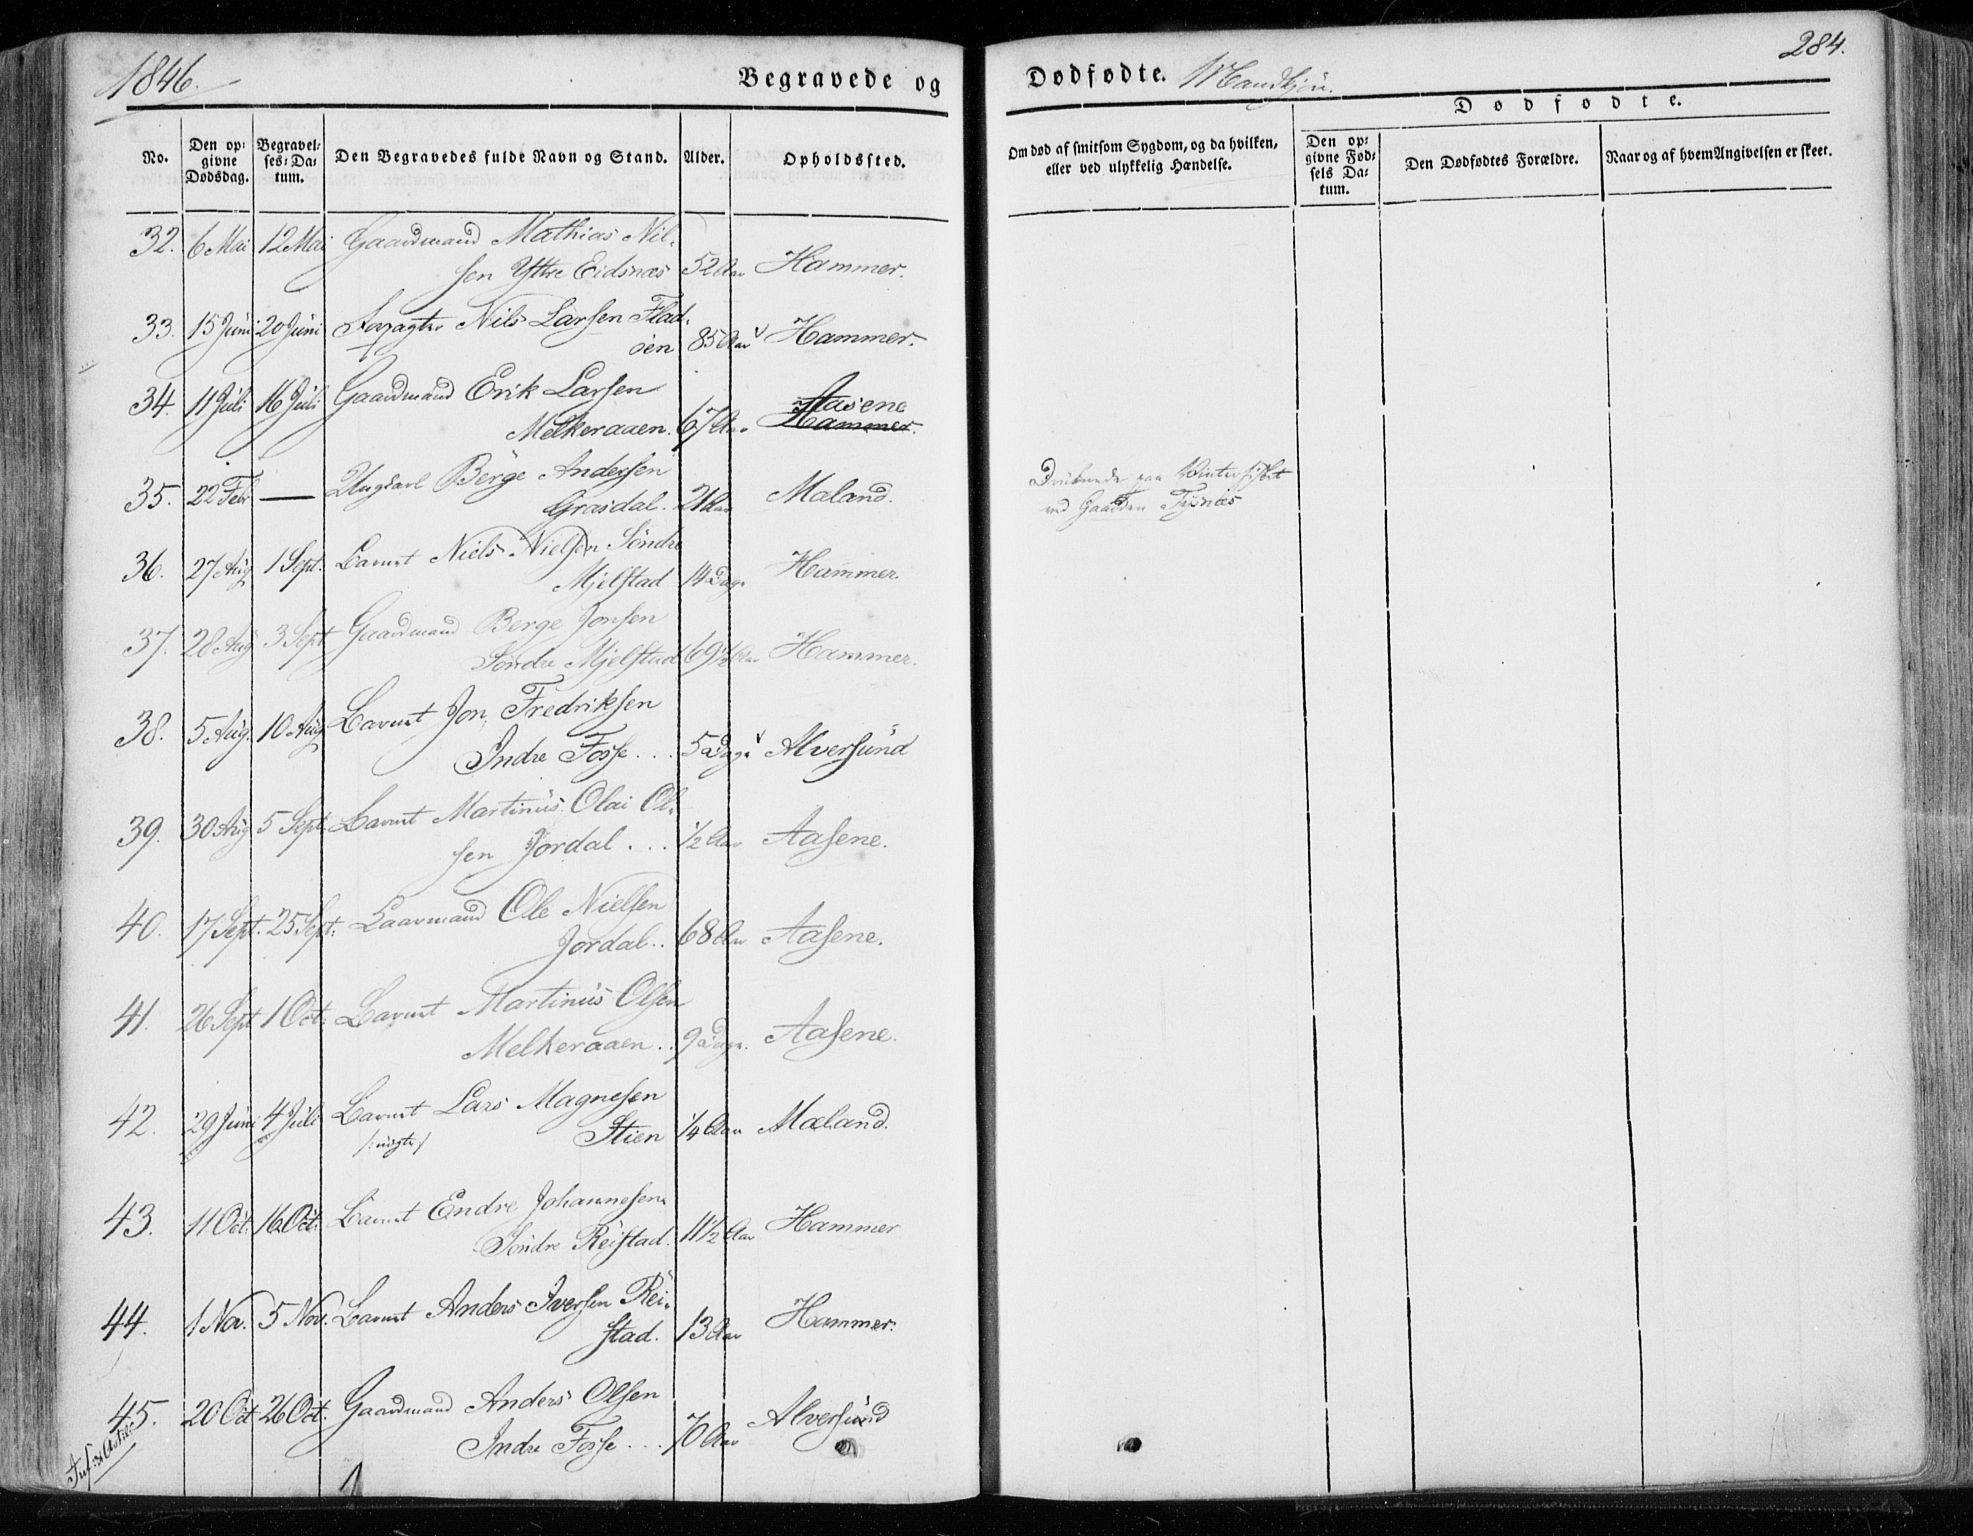 1846.
Begravede og
Dødfødte. Mandkjön.
284.
No.
Den op-
givne
Dødsdag.
Begravel-
ses-Da-
tum.
Den Begravedes fulde Navn og Stand.
Alder.
Opholdssted.
Om død af smitsom Sygdom, og da hvilken,
eller ved ulykkelig Hændelse.
Dødfødte.
Den op-
givne Fød-
sels Da-
tum.
Den Dødfødtes Forældre.
Naar og af hvem Angivelsen er skeet.
32. 6 Mai 12 Mai Gaardmand Mathias Nil-
sen Yttre Eidsnæs 52 Aar Hammer.
33. 15 Juni 20 Juni Forpagter Nils Larsen Flad-
öen 85 Aar Hammer.
34. 11 Juli 16 Juli Gaardmand Erik Larsen Aasene
Melkeraaen. 67 Aar Hammer.
35. 22 Febr — Ungkarl Berge Andersen
Grasdal. 21 Aar Mæland.
Druknede paa Vinterfisket
ved Gaarden
36. 27 Aug 1 Sept. Barnet Niels Nielsen Söndre
Mjelstad 14 Dage Hammer.
37. 28 Aug 3 Sept Gaardmand Berge Jonsen
Söndre Mjelstad 69½ Aar Hammer.
38. 5 Aug. 10 Aug Barnet Jon Fredriksen
Indre Fosse... 5 Dage Alversund
39. 30 Aug 5 Sept. Barnet Martinus Olai Ol-
sen Jordal... ½ Aar Aasene.
40. 17 Sept. 25 Sept. Kaarmand Ole Nielsen
Jordal.. 68 Aar Aasene.
41. 26 Sept 1 Oct. Barnet Martinus Olsen
Melkeraaen.. 9 Dage. Aasene.
42. 29 Juni 4 Juli Barnet Lars Magnesen
/: uægte :/ Stien ¼ Aar Mæland.
43. 11 Oct. 16 Oct. Barnet Endre Johannesen
Söndre Reistad. 11½ Aar Hammer
44. 1 Nov. 5 Nov. Barnet Anders Iversen Rei-
stad. 13 Aar Hammer.
45. 20 Oct 26 Oct. Gaardmand Anders Olsen
Indre Fosse... 70 Aar Alversund